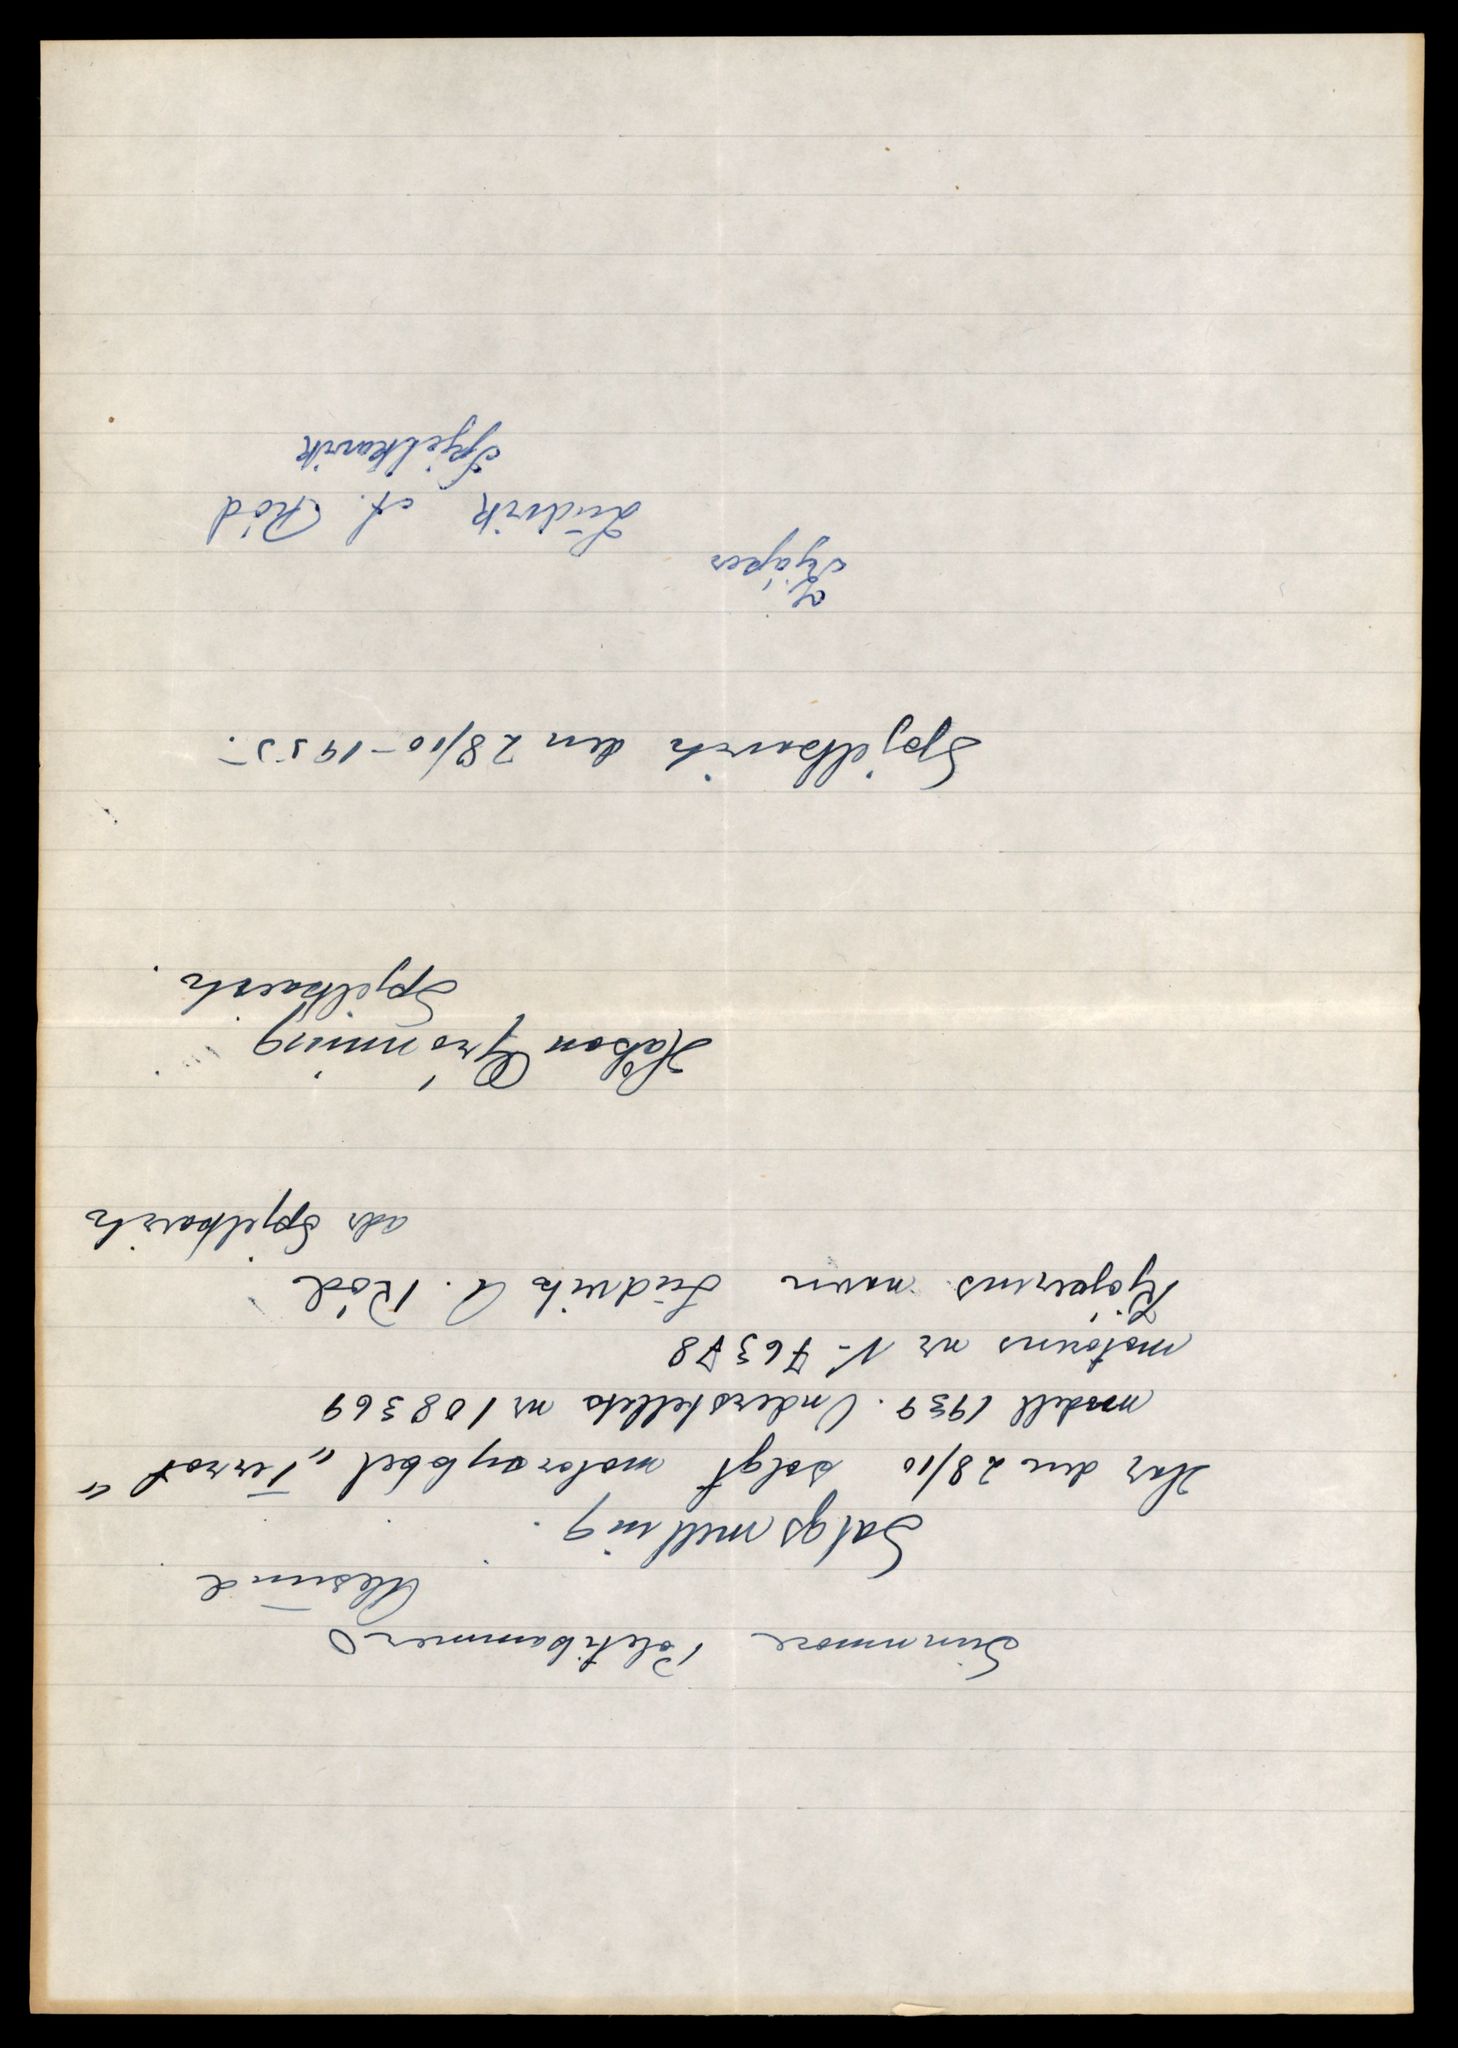 Sunnmøre Politikammer
Ålesund
Salgsmelding.
Har den 28/10 solgt motorsykkel "Terrot"
modell 1939. Understellets nr 108369
motorens nr V- 76378
Kjøperens navn Ludvik A. Röd
adr Spjelkavik
Håkon Grønning
Spjelkavik.
Spjelkavik den 28/10-1955.
Kjøper
Ludvik A. Röd
Spjelkavik